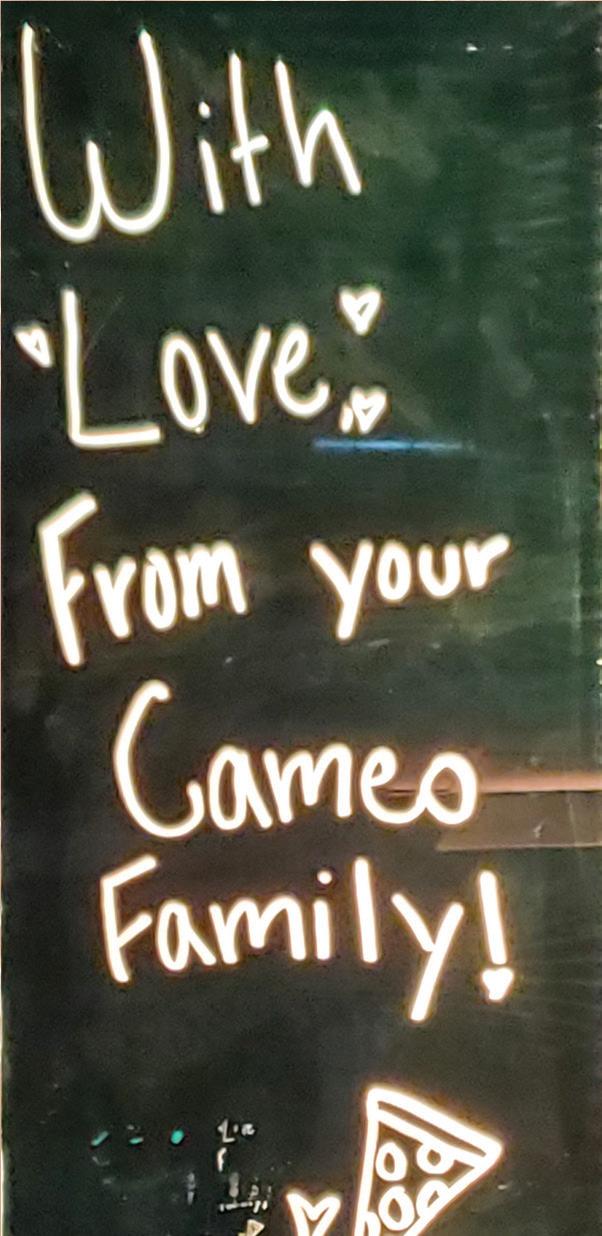 With
Love
From your
Cameo
Family!